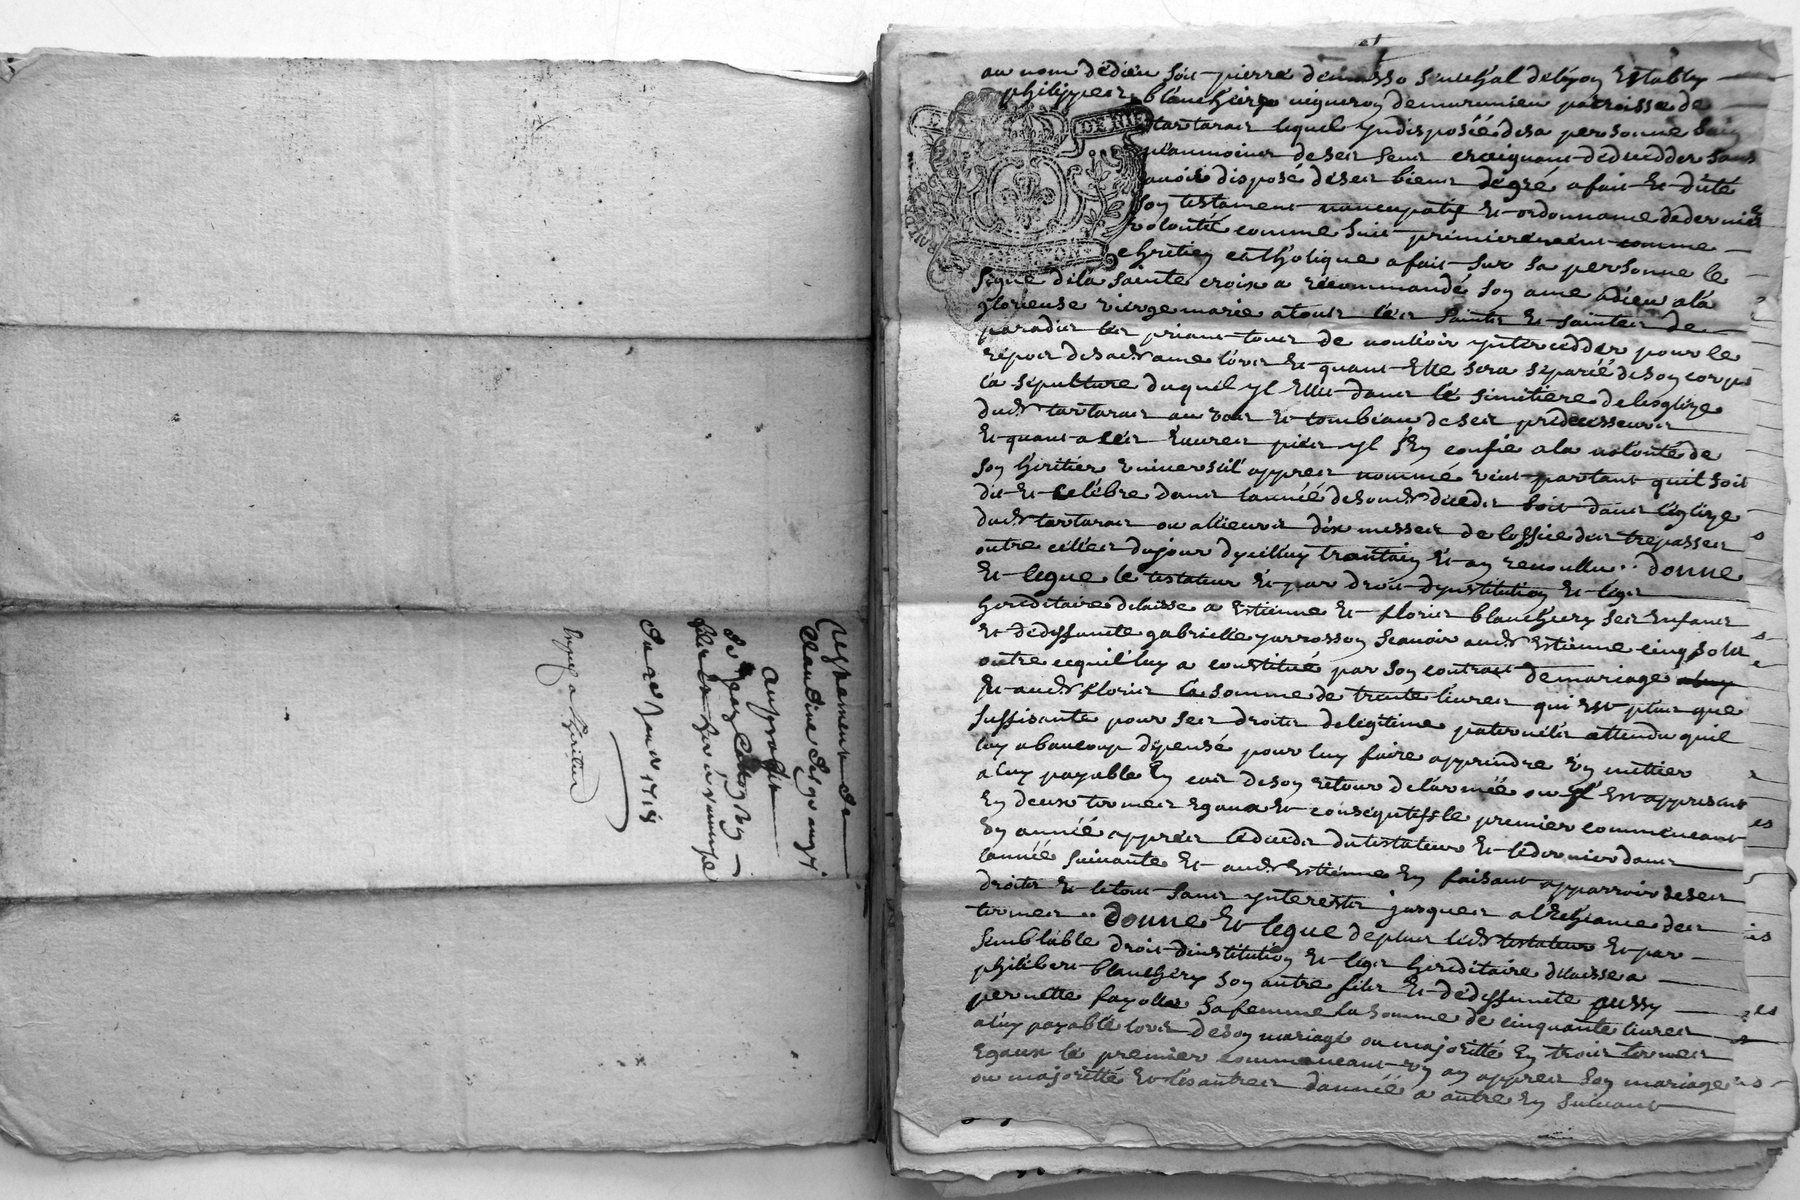 Testement de
Claudine
au proffit
de Jean
du 22 Janr 1718
au nom dedieu soit pierre demasso senechal delyon Estably
philippes blanchery vigneron demurunien parroisse de
tartaras lequel yndisposéé desa personne sain
neanmoins deses sens craignant dedecedder sans
avoir disposé deses biens degré afait Et dité
son testament nuncupatif Et ordonnance dedernier
volonté comme suit premierement comme
chretien catholique afait sur sa personne le
signe dela sainte croix a recommandé son ame adieu ala
glorieuse viergemarie atous les saints Et saintes de
paradis les priant tous de voulloir yntercedder pour le
repos desad ame lors Et quant Elle sera séparéé deson corps
la sépulture duquel yl Ellit dans le simitiere delesglize
dud tartaras au vas Et tombeau deses prédecesseurs
Et quant a ses heuvres pies yl sEn confie ala volonté de
son héritier universel appres nommé veut partant quil soit
dit Et celébre dans lannéé desond décéds soit dans léglize
dud tartaras ou allieurs dix messes de loffice des trepassés
outre celles dujour dycelluy trantain Et an revollu .. donne
Et legue le testateur Et par droit dynstitution Et légs
héréditaire délaisse a Estienne Et floris blanchery ses Enfans
Et dedeffunte gabrielle jarrosson scavoir aud Estienne cinq sols
outre cequil luy a constitué par son contrat demariage
Et aud floris la somme de trente livres qui Est plus que
suffisante pour ses droits delégitime paternélle attendu quil
luy abaucoup dépensé pour luy faire apprendre un mettier
a luy payable En cas deson retour delarméé ou yl Est appresant
En deux termes Egaux Et conséqutifs le premier commencant
un année appres ledeceds dutestateur Et ledernier dans
lannéé suivante Et aud Estienne En faisant apparroir deses
droits Et letout sans ynterests jusques alEchéance des
termes .. donne Et legue deplus led testateur Et par
semblable droit dinstitution Et légs héréditaire délaisse a
philibert blanchery son autre fils Et dédeffunte aussy
pernette fayolle safemme la somme de cinquante livres
aluy payable lors deson mariage ou majoritté En trois termes
Egaux le premier commencant un an appres son mariage
ou majoritté Et lésautres dannéé a autre En suivant